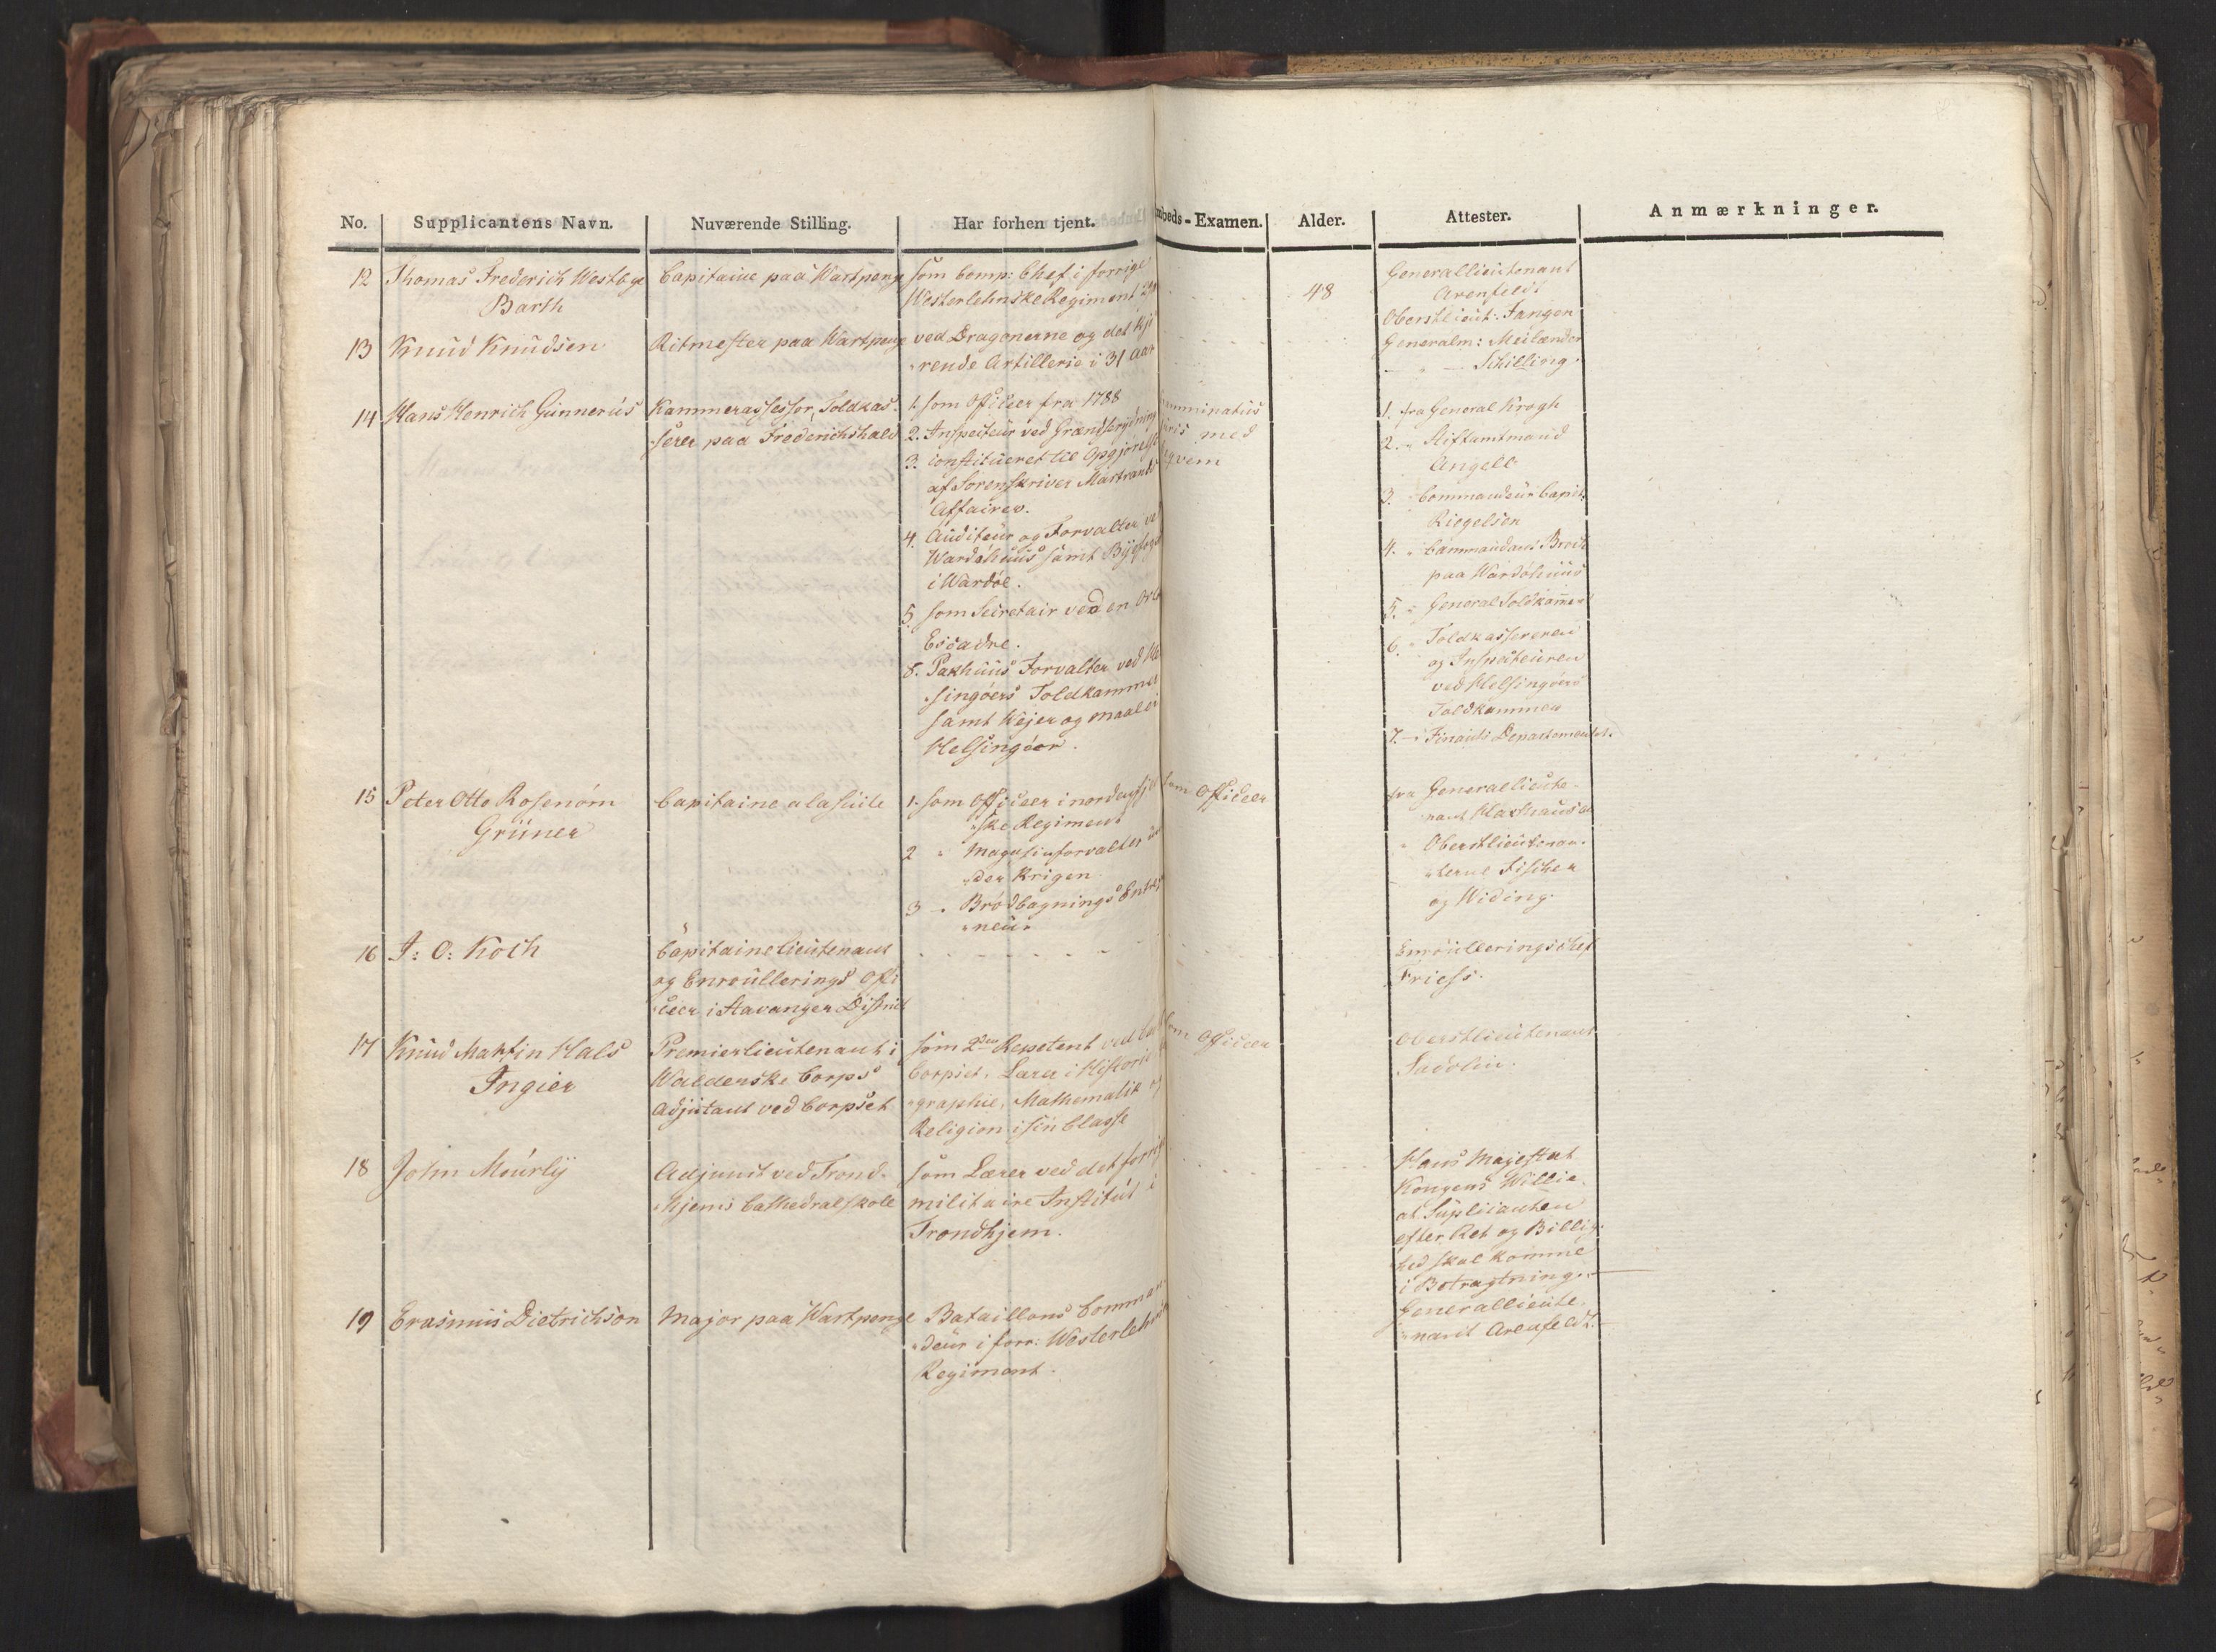 No. Supplicantens Navn. Nuværende Stilling. Har forhen tjent. Embeds-Examen. Alder. Attester. Anmærkninger.
12 Thomas Frederich Westbye
Barth
Capitaine paa Wartpenge
som Comp: Chef i forrige
Westerlehnske Regiment
48
Generallieutenant
Arenfeldt
Oberstlieut: Fangen
13 Knud Knudsen
Ritmester paa Wartpenge
ved Dragonerne og det kjö
rende Artillerie i 31 Aar
Generalm: Meilænder
— " — Schilling.
14 Hans Henrich Gunnerus
Kammerassessor, Toldkas-
serer paa Frederichshald
1. som Officeer fra 1788
2. Inspecteur ved Grændserydning
3. constitueret til Opgjörelse
af Sorenskriver Mártrands
Affairer.
4. Auditeur og Forvalter ved
Wardöhuus samt Byefoged
i Wardöe.
5. som Secretair ved en Orl
Escadre.
8. Pakhuus Forvalter ved Hel
singöers Toldkammer
samt Vejer og maaler i
Helsingöer.
examinatus
juris med
eqvem
1. fra General Krogh
2. " Stiftamtmand
Angell
3. " Commandeur Capit.
Riegelsen
4. " Commandant Broch
paa Wardöhuus
5. " General Toldkameret
6. " Toldkassereren
og Inspecteuren
ved Helsingöers
Toldkammer
7. — " Finants Departementet.
15 Peter Otto Rosenörn
Grüner
Capitaine a la suite
1. som Officeer i nordenfjel
ske Regiment
2 " Magasinforvalter un
der Krigen
3 — " Brödbagnings Entrepre
neur
som Officeer
fra Generallieute-
nant Haxthausen
" Oberstlieutenan-
terne Fischer
og Widing.
16 J: C: Koch
Capitainelieutenant
og Enroullerings Offi
ceer i Stavanger District
Enroulleringschef
Friess.
17 Knud Martin Hals
Ingier
Premierlieutenant i
Walderske Corps
Adjutant ved Corpset
som 2den Repetent ved Cadet
Corpset, Lærer i Historie
graphie, Mathematik og
Religion i sin Classe
som Officeer
Oberstlieutenant
Sadolin.
18 John Mourly
Adjunct ved Trond-
hjems Cathedralskole
som Lærer ved det forrige
militaire Institut i
Trondhjem.
Hans Majestæt
Kongens Willie,
at Suplicanten
efter Ret og Billig-
hed skal komme
i Betragtning. —
19 Erasmus Dietrichson
Major paa Wartpenge
Bataillons Comman-
deur i forr: Westerlehnske
Regiment.
Generallieute-
nant Arenfeldt. —